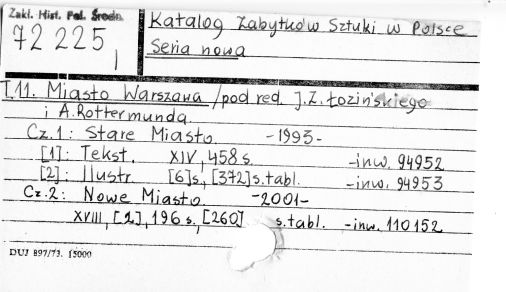 Zakł. Hist. Pol. Średn.
72 225
I
Katalog Zabytków Sztuki w Polsce
Seria nowa
T.11. Miasto Warszawa / pod red. J.Z. Łozińskiego
i A. Rottermunda.
Cz.1: Stare Miasto. -1993-
[1]: Tekst. XIV, 458 s. -inw. 94952
[2]: Ilustr. [6] s, [372] s. tabl. -inw. 94953
Cz.2: Nowe Miasto. -2001-
XVIII, [2], 196 s, [260] s. tabl. -inw. 110152
DUJ 897/73. 15000